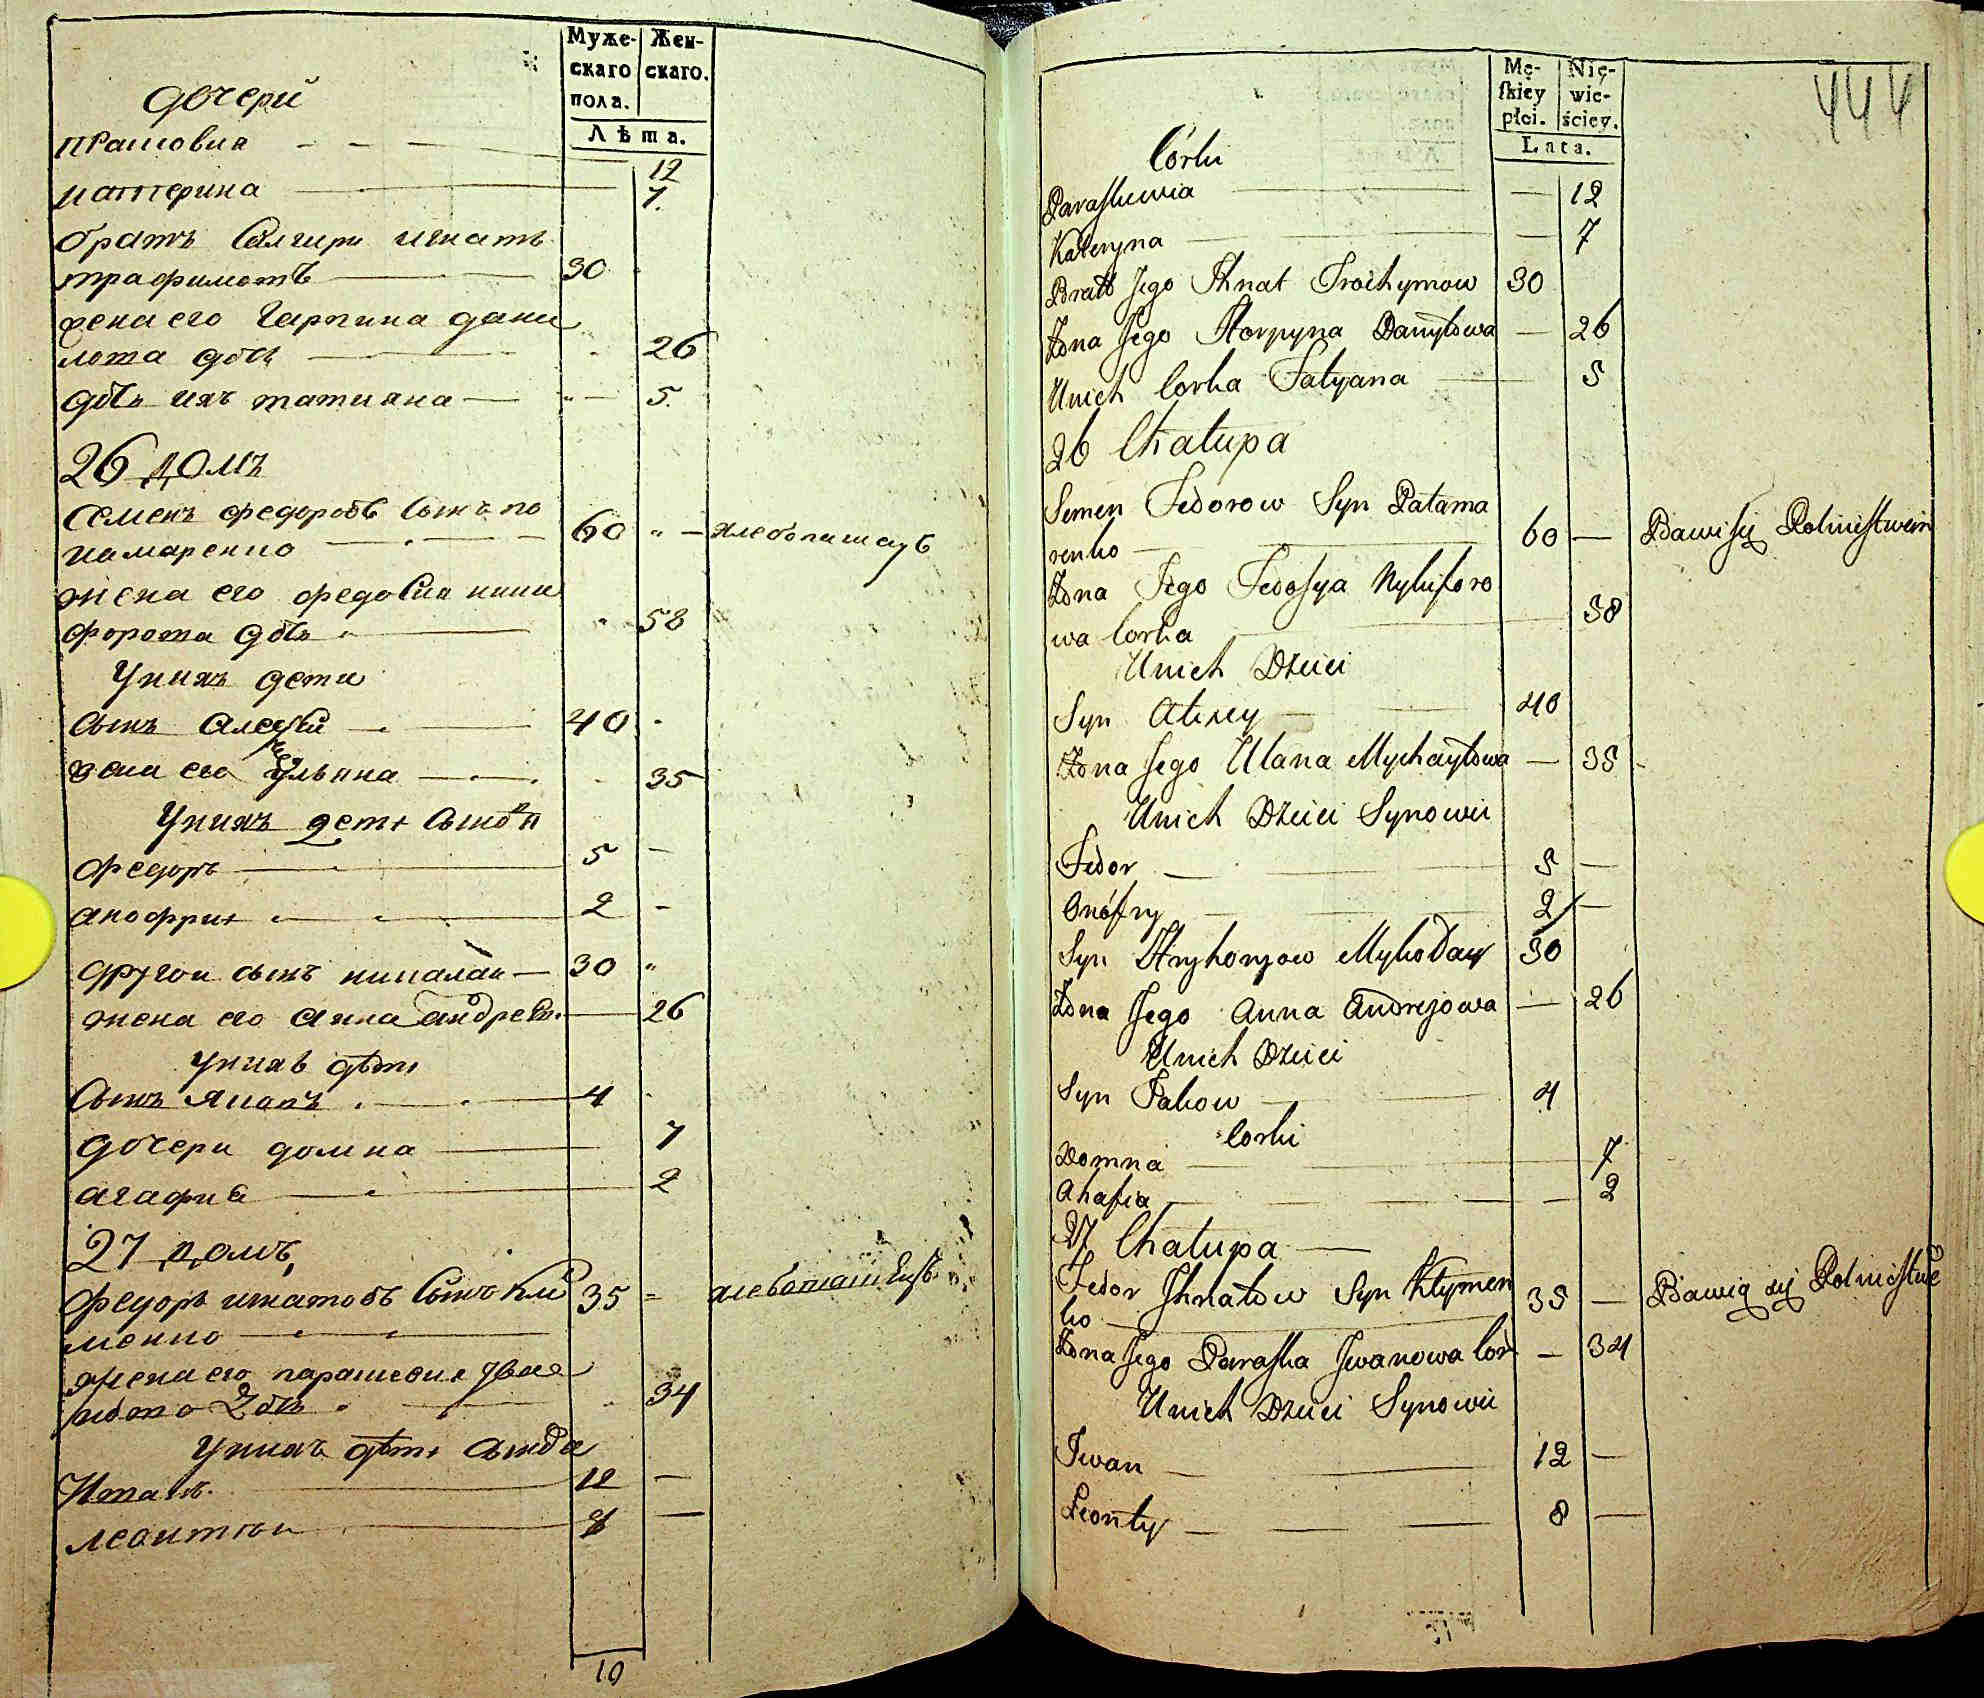 Муже- Жен-
скаго скаго.
пола.
Лѣта.
дочери
12
катерина 7.
братъ игнатъ
30
жена его дани
лова 26
ихъ татиана 5.
26 домъ
Семенъ федоровъ Сынъ по
намаренко 60
жена его федосиа ники
форова 58
У нихъ дети
Сынъ 40
жена его Ульяна 35
У нихъ
федоръ 5
анофрии 2
другои сынъ николаи 30
жена его анна андреев. 26
у нихъ
Сынъ Яковъ 4
дочери домна 7
агафия 2
27 домъ
федоръ игнатовъ Сынъ кли 35
менко
жена его
34
у нихъ
Иванъ 12
леонтии 8
10
444
Mę- Nie-
skiey wie-
płci. ściey.
Lata.
Córki
Paraskewia — 12
Kateryna — 7
Bratt Jego Ihnat Trochymow 30
Żona Jego Horpyna Daniłowa — 26
Unich Corka Tatyana 5
26 Chałupa
Semen Fedorow Syn Patama
renko 60 — Bawi się Rolnistwem
Żona Jego Fedosya Nykiforo
wa Corka 58
Unich Dzieci
Syn Alexey 40
Żona Jego Ulana Mychayłowa — 35
Unich Dzieci Synowii
Fedor 5 —
Onófry 2 —
Syn Hryhoryow Mykołay 30
Żona Jego Anna Andrejowa — 26
Unich Dzieci
Syn Jakow 4
Corki
Domna 7
Ahafia — 2
27 Chałupa
Fedor Ihnatow Syn Kłymen
ko 35 — Bawią się
Żona Jego Paraska Jwanowa Cor — 34
Unich Dzieci Synowii
Iwan 12 —
Leonty 8 —